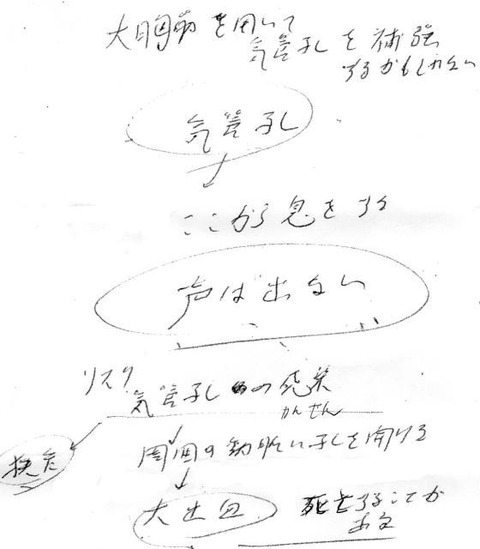 大胸筋を用いて
気管孔を補強
するかもしれない
気管孔
ここから息をする
声は出ない
リスク
気管孔の感染
かんせん
周囲の動脈に孔を開ける
大出血 死亡することが
ある